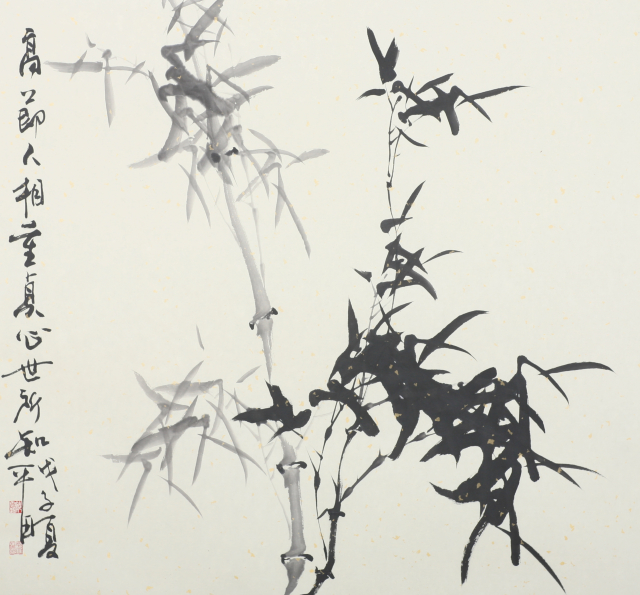 高節人相重虚心世所知
戊子夏
平